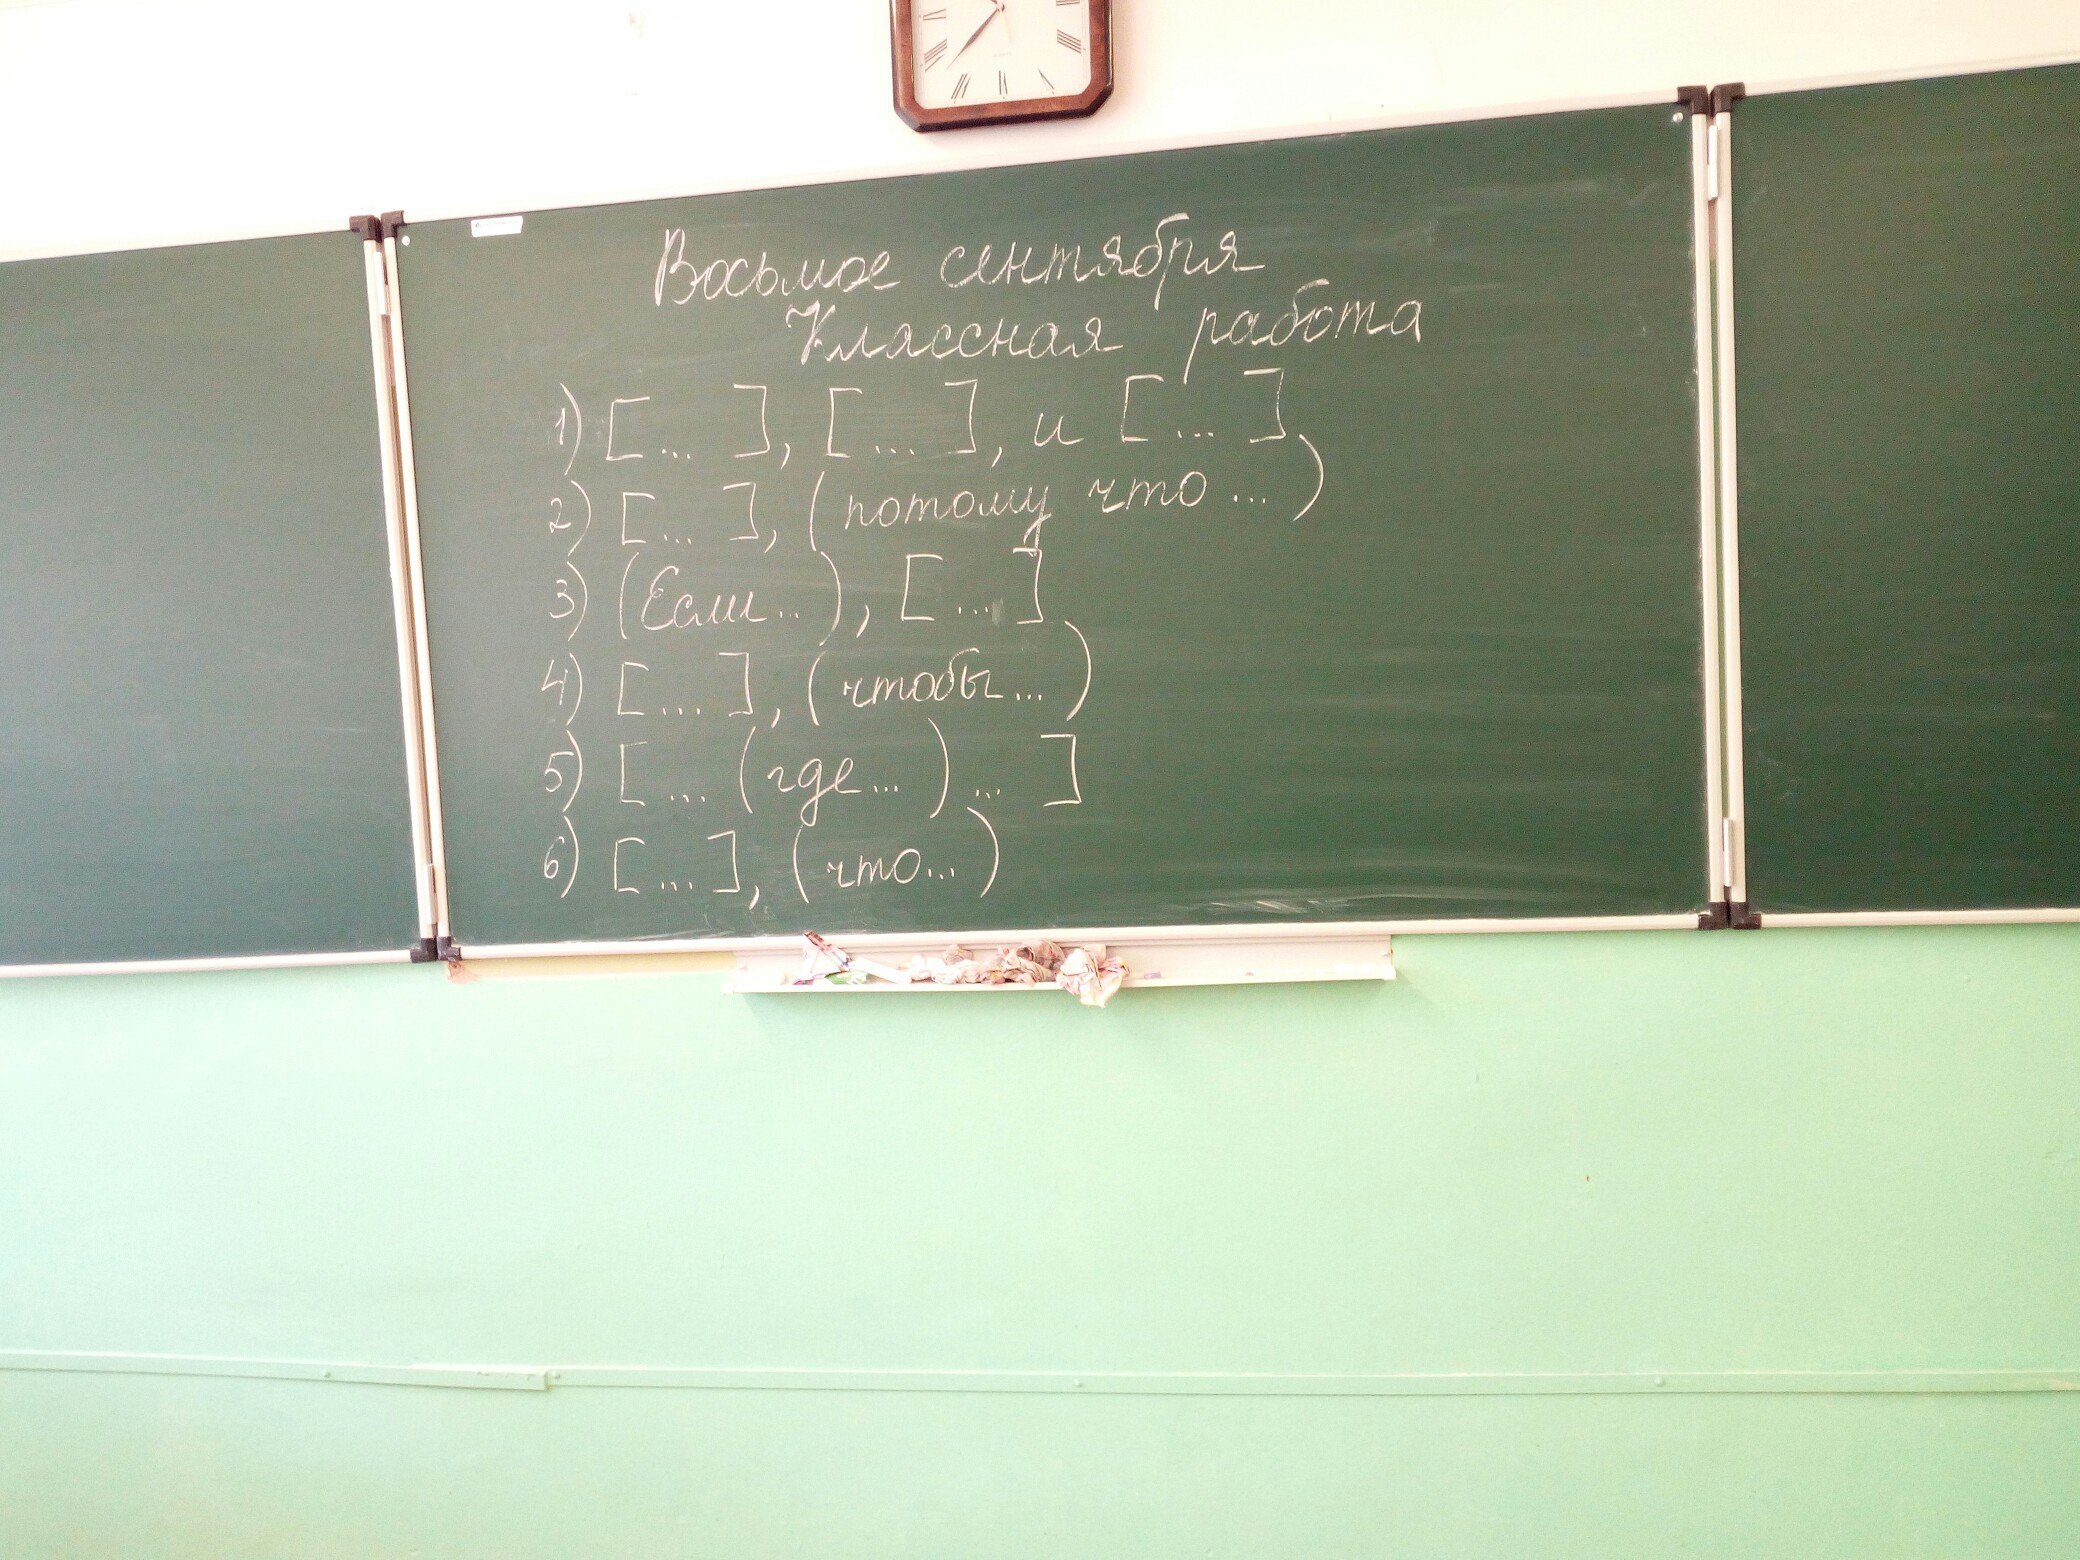 Восьмое сентября
Классная работа
1) [... ], [... ], и [... ]
2) [... ], (потому что ... )
3) (Если... ), [... ]
4) [... ], (чтобы... )
5) [ ... (где... ) ... ]
6) [... ], (что... )